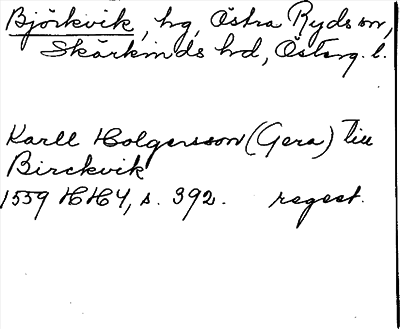 Björkvik, hg, Östra Ryds sn,
Skärkinds hd, Österg. l.
Karll Holgersson (Gera) till
Birckvik
1559 HH4, s. 392. regest.